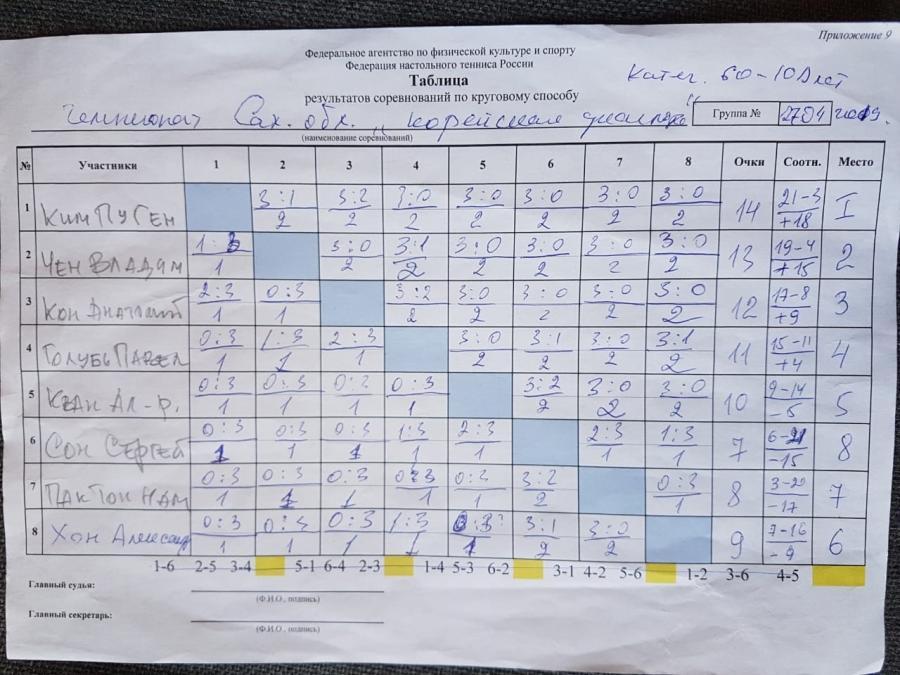 Приложение 9
Федеральное агентство по физической культуре и спорту
Федерация настольного тенниса России
Таблица
Катег. 60-100 лет
результатов соревнований по круговому способу
Чемпионат Сах. обл. „корейская диаспора“ Группа № 2704 2019.
(наименование соревнований)
№ Участники 1 2 3 4 5 6 7 8 Очки Соотн. Место
1 Ким Пу Ген 3:1 3:2 3:0 3:0 3:0 3:0 3:0 14 21-3 I
2 2 2 2 2 2 2 +18
2 Чен Владим 1:3 3:0 3:1 3:0 3:0 3:0 3:0 13 19-4 2
1 2 2 2 2 2 2 +15
3 Кон Анатолий 2:3 0:3 3:2 3:0 3:0 3:0 3:0 12 17-8 3
1 1 2 2 2 2 2 +9
4 Голубь Павел 0:3 1:3 2:3 3:0 3:1 3:0 3:1 11 15-11 4
1 1 1 2 2 2 2 +4
5 Кван Ал-р. 0:3 0:3 0:3 0:3 3:2 3:0 3:0 10 9-14 5
1 1 1 1 2 2 2 -5
6 Сон Сергей 0:3 0:3 0:3 1:3 2:3 2:3 1:3 7 6-21 8
1 1 1 1 1 1 1 -15
7 Пак Тон Нам 0:3 0:3 0:3 0:3 0:3 3:2 0:3 8 3-20 7
1 1 1 1 1 2 1 -17
8 Хон Александ 0:3 0:3 0:3 1:3 0:3 3:1 3:0 9 7-16 6
1 1 1 1 1 2 2 -9
1-6 2-5 3-4 5-1 6-4 2-3 1-4 5-3 6-2 3-1 4-2 5-6 1-2 3-6 4-5
Главный судья:
(Ф.И.О., подпись)
Главный секретарь:
(Ф.И.О., подпись)